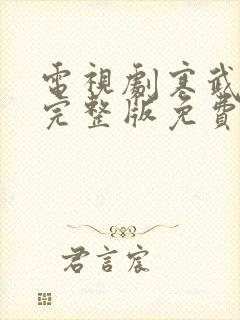 電視劇寒武
完整版免費
君言宸